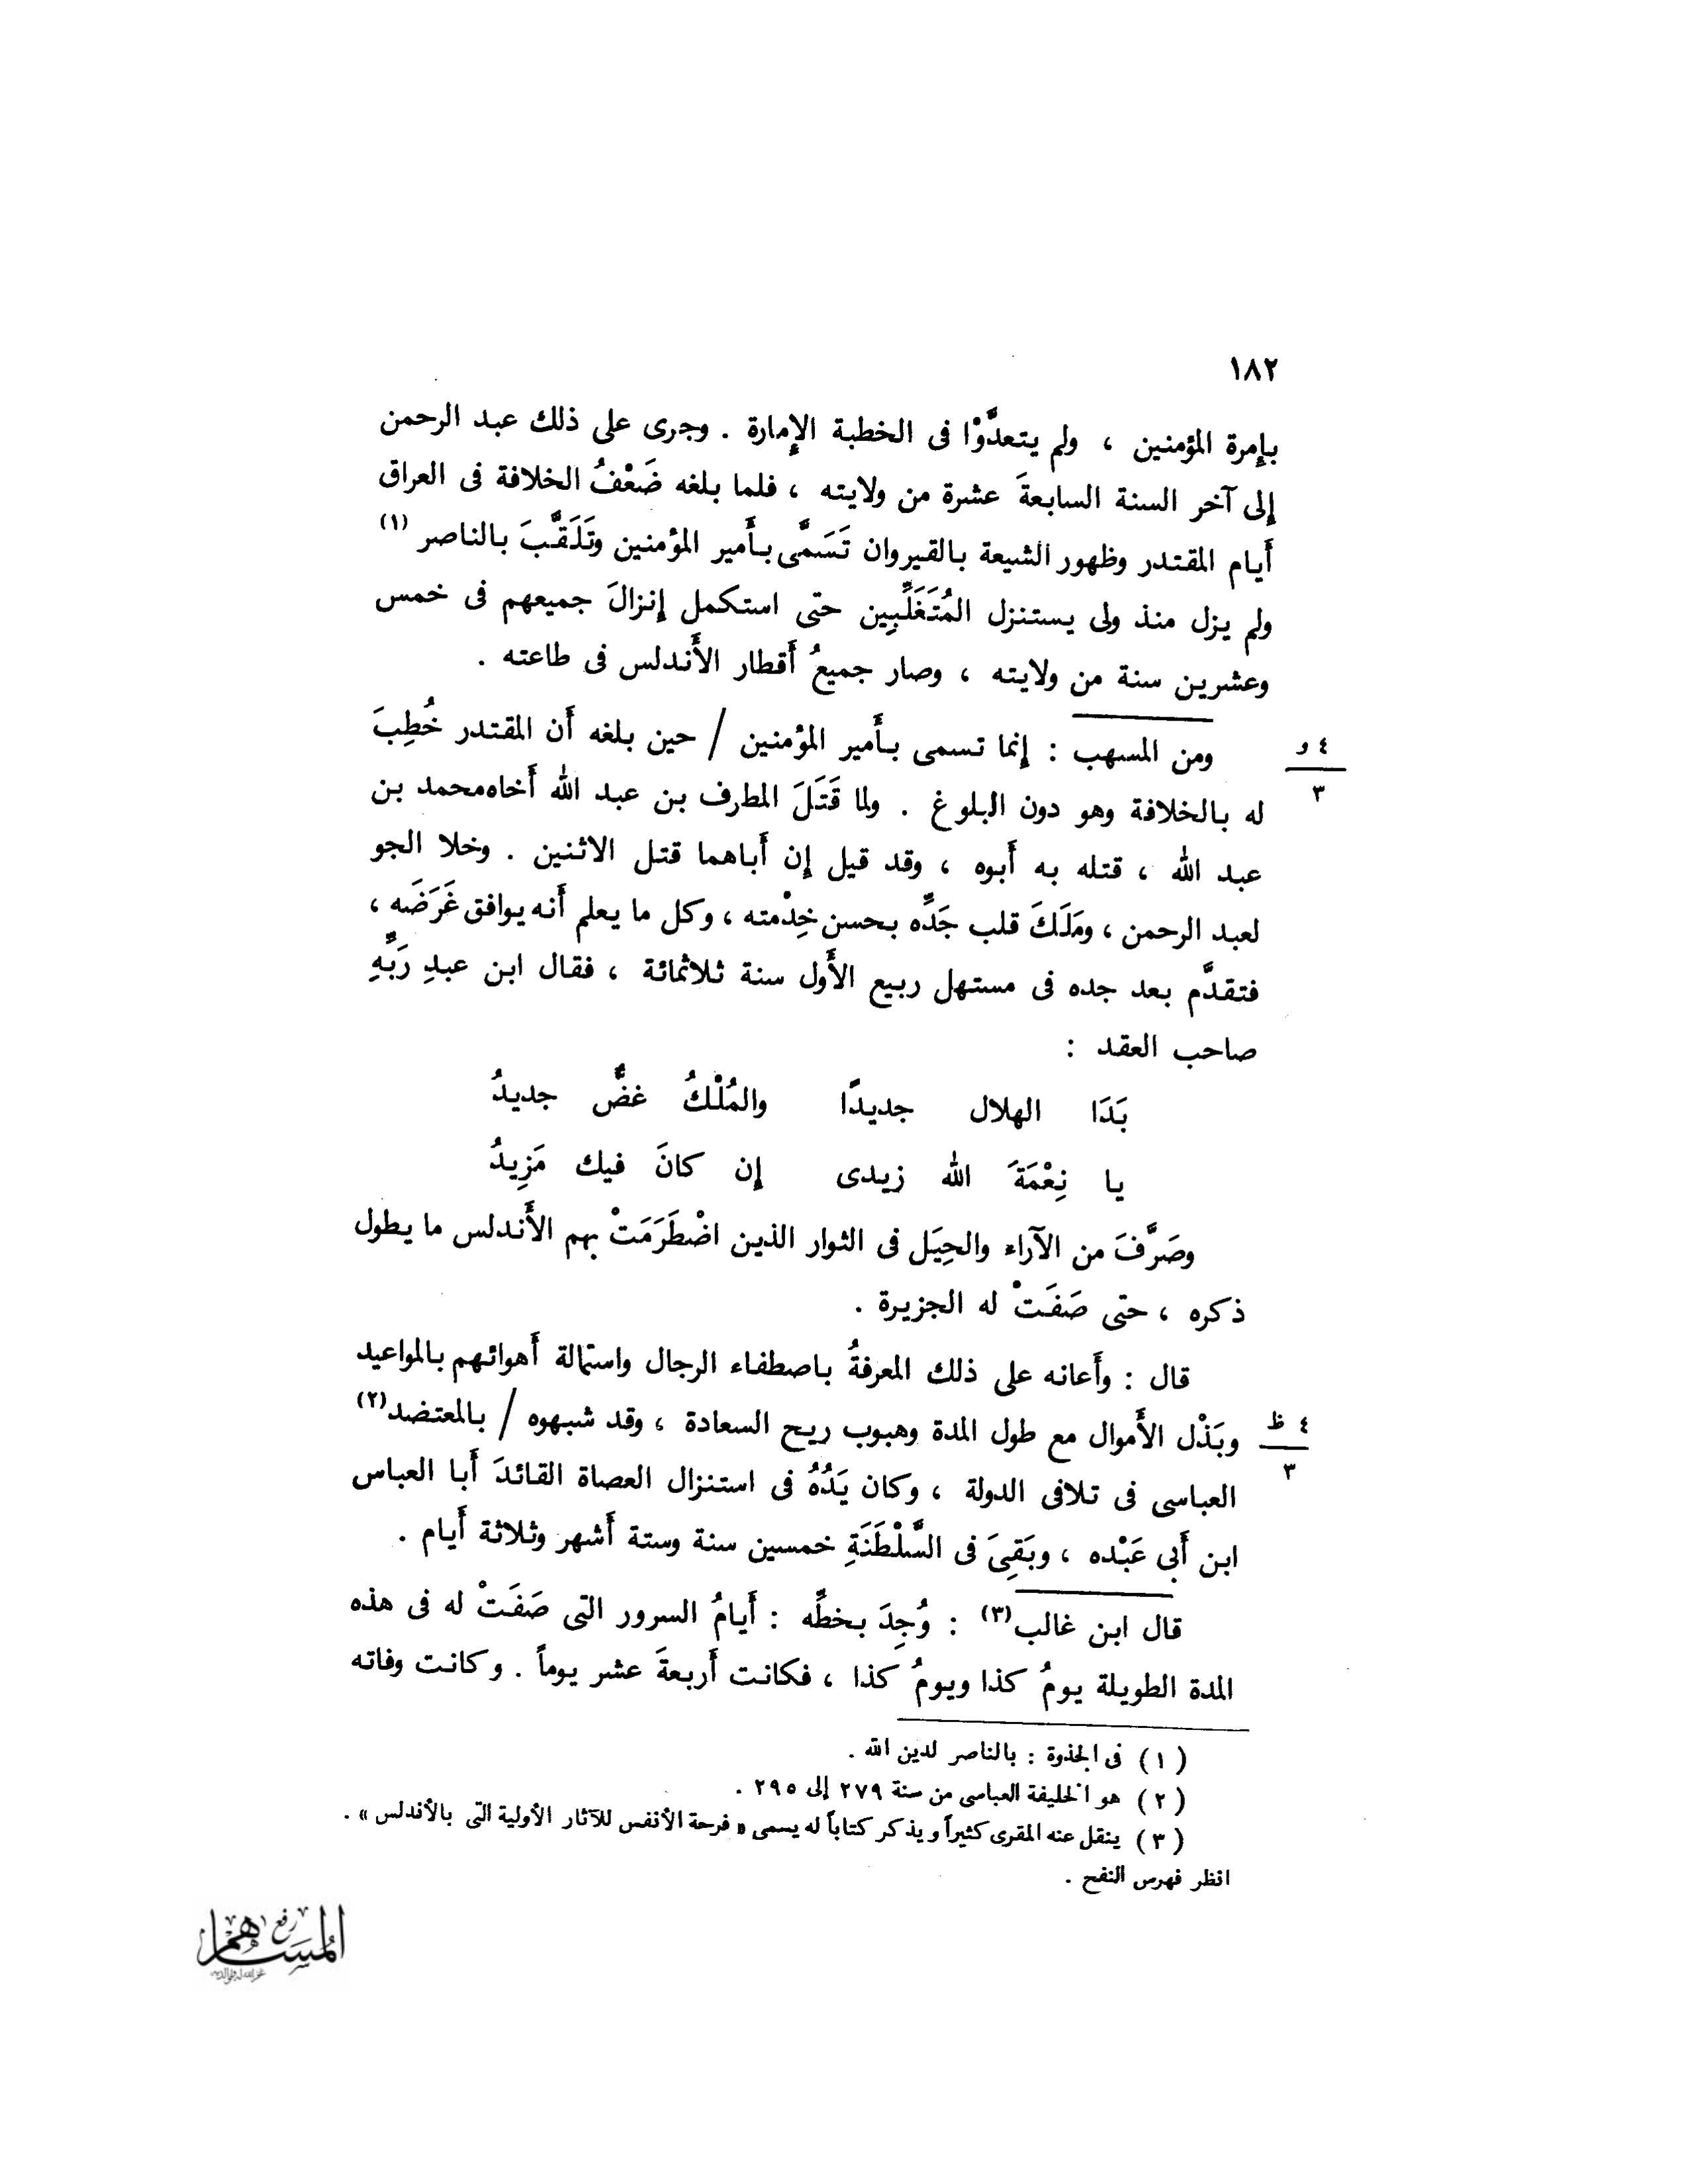 ١٨٢
بإمرة المؤمنين ، ولم يتعدَّوْا فى الخطبة الإمارة . وجرى على ذلك عبد الرحمن
إلى آخر السنة السابعةَ عشرة من ولايته ، فلما بلغه ضَعْفُ الخلافة فى العراق
أيام المقتدر وظهور الشيعة بالقيروان تَسَمَّى بأَمير المؤمنين وتَلَقَّبَ بالناصر (١)
ولم يزل منذ ولى يستنزل المُتَغَلِّبِين حتى استكمل إنزالَ جميعهم فى خمس
وعشرين سنة من ولايته ، وصار جميعُ أَقطار الأَندلس فى طاعته .
ومن المسهب : إنما تسمى بأَمير المؤمنين / حين بلغه أَن المقتدر خُطِبَ
٤ و
٣
له بالخلافة وهو دون البلوغ . ولما قَتَلَ المطرف بن عبد الله أَخاه محمد بن
عبد الله ، قتله به أَبوه ، وقد قيل إن أَباهما قتل الاثنين . وخلا الجو
لعبد الرحمن ، ومَلَكَ قلب جَدِّه بحسن خِدْمته ، وكل ما يعلم أَنه يوافق غَرَضَه ،
فتقدَّم بعد جده فى مستهل ربيع الأَول سنة ثلاثمائة ، فقال ابن عبدِ رَبِّهِ
صاحب العقد :
بَدَا الهلال جديدًا والمُلْكُ غضٌّ جديدُ
يا نِعْمَةَ الله زيدى إن كانَ فيك مَزِيدُ
وصَرَّفَ من الآراء والحِيَل فى الثوار الذين اضْطَرَمَتْ بهم الأَندلس ما يطول
ذكره ، حتى صَفَتْ له الجزيرة .
قال : وأَعانه على ذلك المعرفةُ باصطفاء الرجال واستمالة أَهوائهم بالمواعيد
وبَذْل الأَموال مع طول المدة وهبوب ريح السعادة ، وقد شبهوه / بالمعتضد (٢)
٤ ظ
٣
العباسى فى تلافى الدولة ، وكان يَدُهُ فى استنزال العصاة القائدَ أَبا العباس
ابن أَبى عَبْده ، وبَقِىَ فى السَّلْطَنَةِ خمسين سنة وستة أَشهر وثلاثة أَيام .
قال ابن غالب (٣) : وُجِدَ بخطِّه : أَيامُ السرور التى صَفَتْ له فى هذه
المدة الطويلة يومُ كذا ويومُ كذا ، فكانت أَربعةَ عشر يوماً . وكانت وفاته
( ١ ) فى الجذوة : بالناصر لدين الله .
( ٢ ) هو الخليفة العباسى من سنة ٢٧٩ إلى ٢٩٥ .
( ٣ ) ينقل عنه المقرى كثيراً ويذكر كتاباً له يسمى « فرحة الأنفس للآثار الأولية التى بالأندلس » .
انظر فهرس النفح .